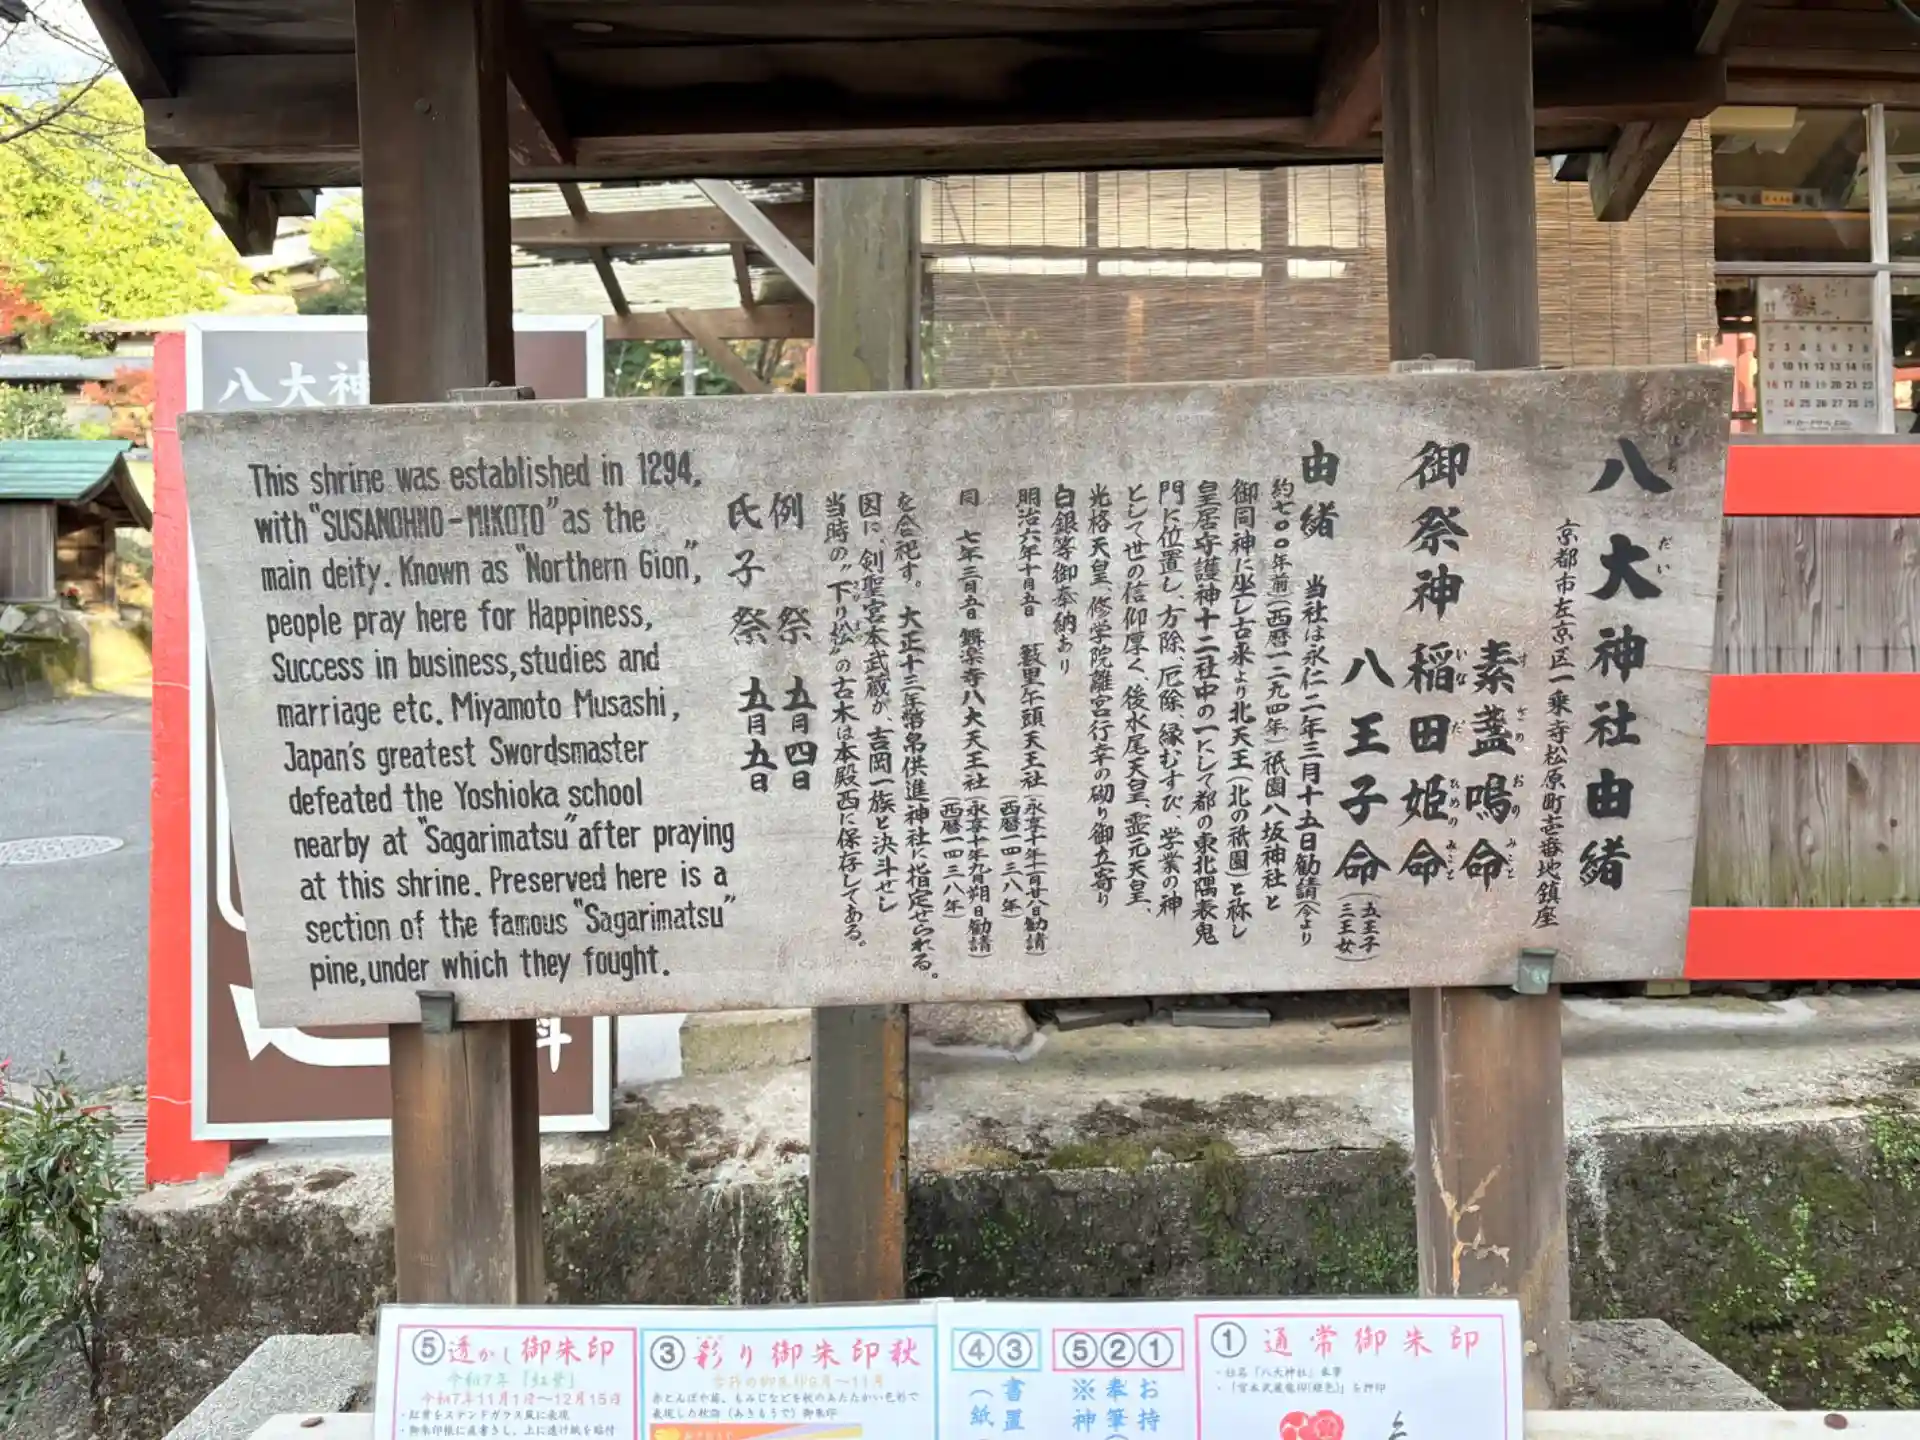 八大神社由緒
はち
だい
京都市左京区一乗寺松原町壱番地鎮座
御祭神
素盞嗚命
すさのおのみこと
稲田姫命
いなだひめのみこと
八王子命
(五王子
三王女)
由緒 当社は永仁二年三月十五日勧請(今より
約七〇〇年前(西暦一二九四年)祇園八坂神社と
御同神に坐し古来より北天王(北の祇園)と称し
皇居守護神十二社中の一にして都の東北隅表鬼
門に位置し、方除、厄除、縁むすび、学業の神
として世の信仰厚く、後水尾天皇、霊元天皇、
光格天皇、修学院離宮行幸の砌り御立寄り
白銀等御奉納あり
明治六年十月五日 藪里牛頭天王社(永享十年十一月廿八日勧請)
(西暦一四三八年)
同 七年三月五日 舞楽寺八大天王社(永享十年九月朔日勧請)
(西暦一四三八年)
を合祀す。大正十三年幣帛供進神社に指定せられる。
因に、剣聖宮本武蔵が、吉岡一族と決斗せし
当時の"下り松"の古木は本殿西に保存してある。
例祭 五月四日
氏子祭 五月五日
This shrine was established in 1294,
with "SUSANOHNO-MIKOTO" as the
main deity. Known as "Northern Gion",
people pray here for Happiness,
Success in business, studies and
marriage etc. Miyamoto Musashi,
Japan's greatest Swordsmaster
defeated the Yoshioka school
nearby at "Sagarimatsu" after praying
at this shrine. Preserved here is a
section of the famous "Sagarimatsu"
pine, under which they fought.
八大神
料
11
①通常御朱印
・社名「八大神社」奉筆
・「宮本武蔵龍印(緑色)」を押印
①②⑤
お持
奉筆(
※神
③④
書置
(紙
③彩り御朱印秋
赤とんぼや菊、もみじなどを秋のあたたかい色彩で
表現した秋詣(あきもうで)御朱印
⑤透かし御朱印
令和7年「紅葉」
令和7年11月1日〜12月15日
・紅葉をステンドガラス風に表現
・御朱印帳に直書きし、上に透け紙を貼付